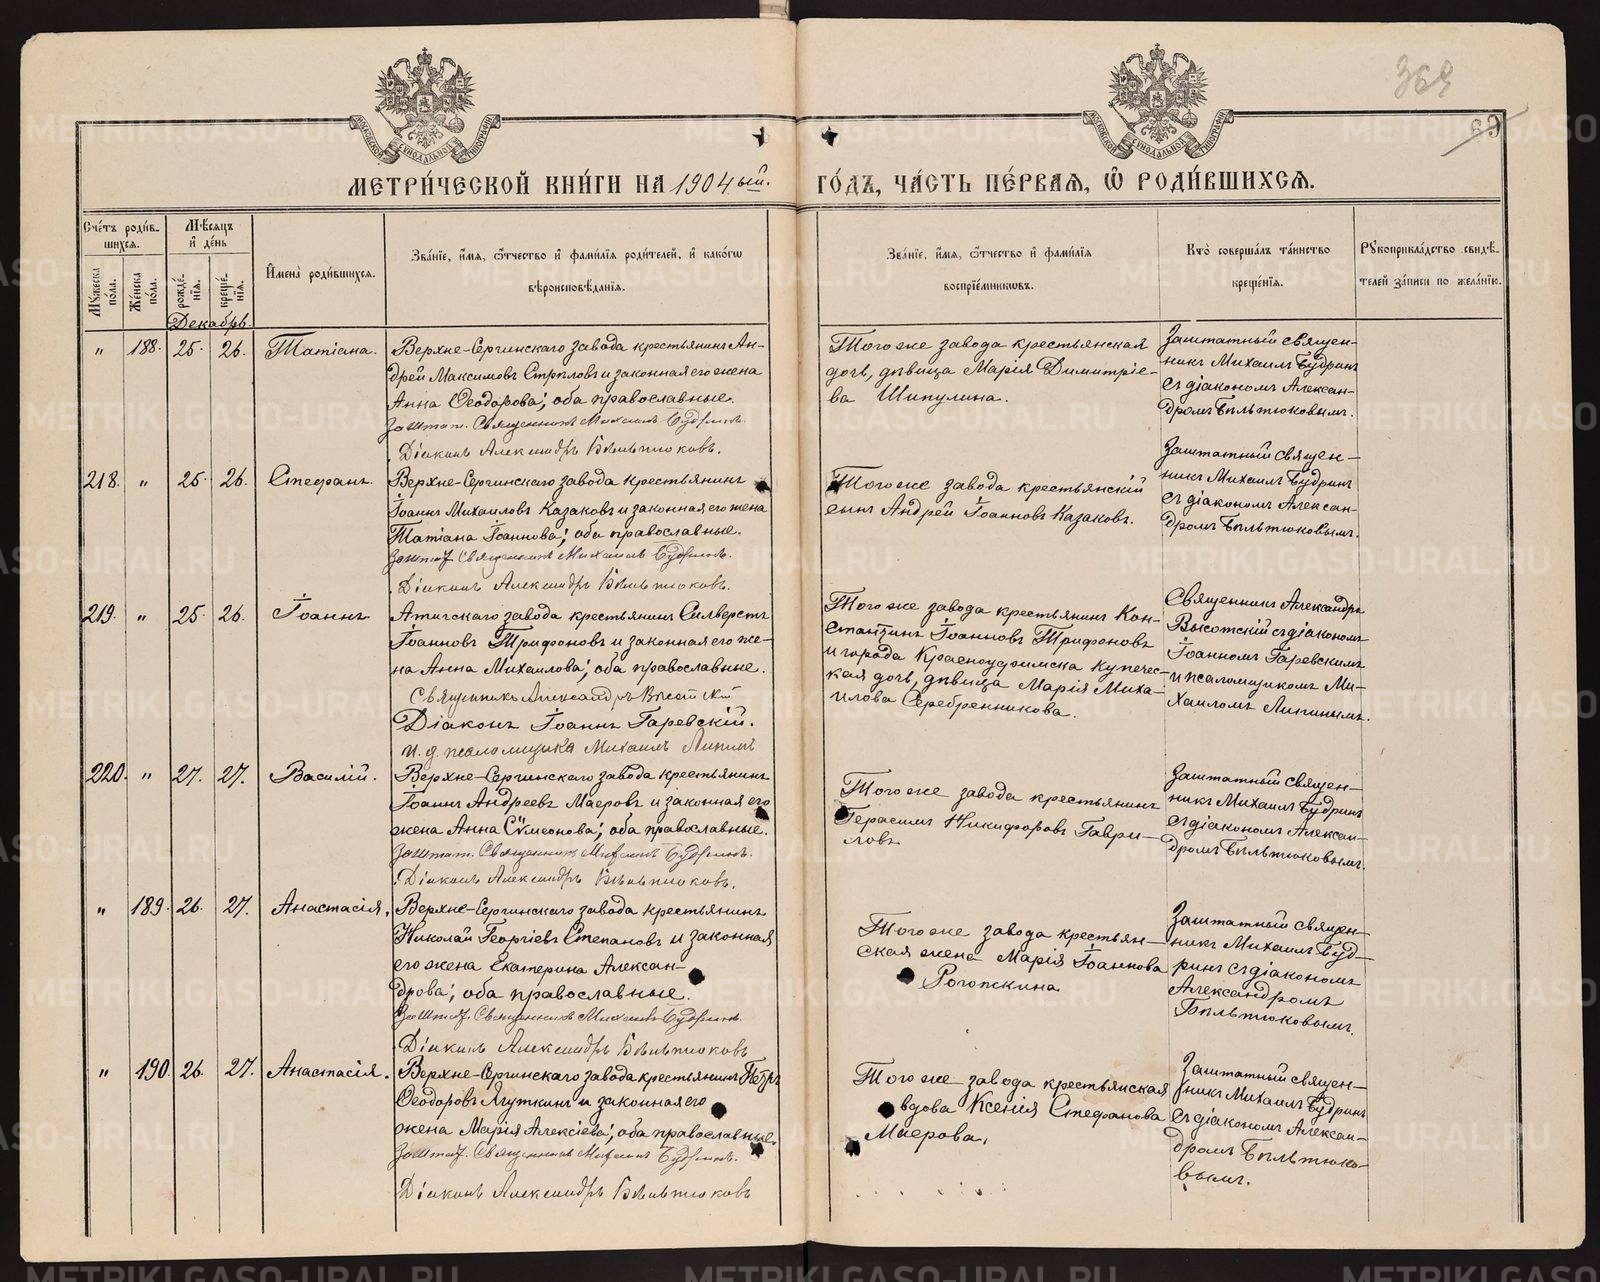 369
69
МОСКОВСКОЙ СѴНОДАЛЬНОЙ ТИПОГРАФІИ
МОСКОВСКОЙ СѴНОДАЛЬНОЙ ТИПОГРАФІИ
МЕТРИ́ЧЕСКОЙ КНИ́ГИ НА 1904ый.
ГО́ДЪ, ЧА́СТЬ ПЕ́РВАѦ, Ѽ РОДИ́ВШИХСѦ.
Сче́тъ роди́в-
шихся.
Мѣсяцъ
и де́нь
Мꙋ́жеска по́ла.
Же́нска по́ла.
рожде́-
нїя.
креще́-
нїя.
Имена̀ роди́вшихся.
Зва́нїе, и́мя, ѻ҆́тчество и фами́лїя роди́телей, и како́гѡ
вѣроисповѣ́данїя.
Зва́нїе, и́мя, ѻ҆́тчество и фами́лїя
воспрїе́мникѡвъ.
Кто̀ соверша́лъ та́инство
креще́нїя.
Рꙋкоприкла́дство свидѣ́-
телей за́писи по жела́нїю.
Декабрь.
" 188. 25. 26. Татіана.
Верхне-Сергинскаго завода крестьянинъ Ан-
дрей Максимовъ Стрѣловъ и законная его жена
Анна Ѳеодорова; оба православные.
Заштат. Священникъ Михаилъ Будринъ.
Діаконъ Александръ Бѣльтюковъ.
Того же завода крестьянская
дочь, дѣвица Марія Димитріе-
ва Шипулина.
Заштатный священ-
никъ Михаилъ Будринъ
съ діакономъ Алексан-
дромъ Бѣльтюковымъ.
218. " 25. 26. Стефанъ.
Верхне-Сергинскаго завода крестьянинъ
Іоаннъ Михаиловъ Казаковъ и законная его жена
Татіана Іоаннова; оба православные.
Заштат. Священникъ Михаилъ Будринъ.
Діаконъ Александръ Бѣльтюковъ.
Того же завода крестьянскій
сынъ Андрей Іоанновъ Казаковъ.
Заштатный священ-
никъ Михаилъ Будринъ
съ діакономъ Алексан-
дромъ Бѣльтюковымъ.
219. " 25. 26. Іоаннъ.
Атигскаго завода крестьянинъ Силверстъ
Іоанновъ Трифоновъ и законная его же-
на Анна Михаилова; оба православные.
Священникъ Александръ Высотскій
Діаконъ Іоаннъ Гаревскій.
И. д. псаломщика Михаилъ Липинъ
Того же завода крестьянинъ Кон-
стантинъ Іоанновъ Трифоновъ
и города Красноуфимска купечес-
кая дочь, дѣвица Марія Миха-
илова Серебренникова.
Священникъ Александръ
Высотскій съ діакономъ
Іоанномъ Гаревскимъ
и псаломщикомъ Ми-
хаиломъ Липинымъ.
220. " 27. 27. Василій.
Верхне-Сергинскаго завода крестьянинъ
Іоаннъ Андреевъ Маеровъ и законная его
жена Анна Сѵмеонова; оба православные.
Заштат. Священникъ Михаилъ Будринъ.
Діаконъ Александръ Бѣльтюковъ.
Того же завода крестьянинъ
Герасимъ Никифоровъ Гаври-
ловъ
Заштатный священ-
никъ Михаилъ Будринъ
съ діакономъ Алексан-
дромъ Бѣльтюковымъ.
" 189. 26. 27. Анастасія.
Верхне-Сергинскаго завода крестьянинъ
Николай Георгіевъ Степановъ и законная
его жена Екатерина Алексан-
дрова; оба православные.
Заштат. Священникъ Михаилъ Будринъ.
Діаконъ Александръ Бѣльтюковъ
Того же завода крестьян-
ская жена Марія Іоаннова
Рогожкина
Заштатный священ-
никъ Михаилъ Буд-
ринъ съ діакономъ
Александромъ
Бѣльтюковымъ.
" 190. 26. 27. Анастасія.
Верхне-Сергинскаго завода крестьянинъ Петръ
Ѳеодоровъ Ягуткинъ и законная его
жена Марія Алексіева; оба православные.
Заштат. Священникъ Михаилъ Будринъ.
Діаконъ Александръ Бѣльтюковъ
Того же завода крестьянская
вдова Ксенія Стефанова
Маерова.
Заштатный священ-
никъ Михаилъ Будринъ
съ діакономъ Алексан-
дромъ Бѣльтюко-
вымъ.
METRIKI.GASO-URAL.RU